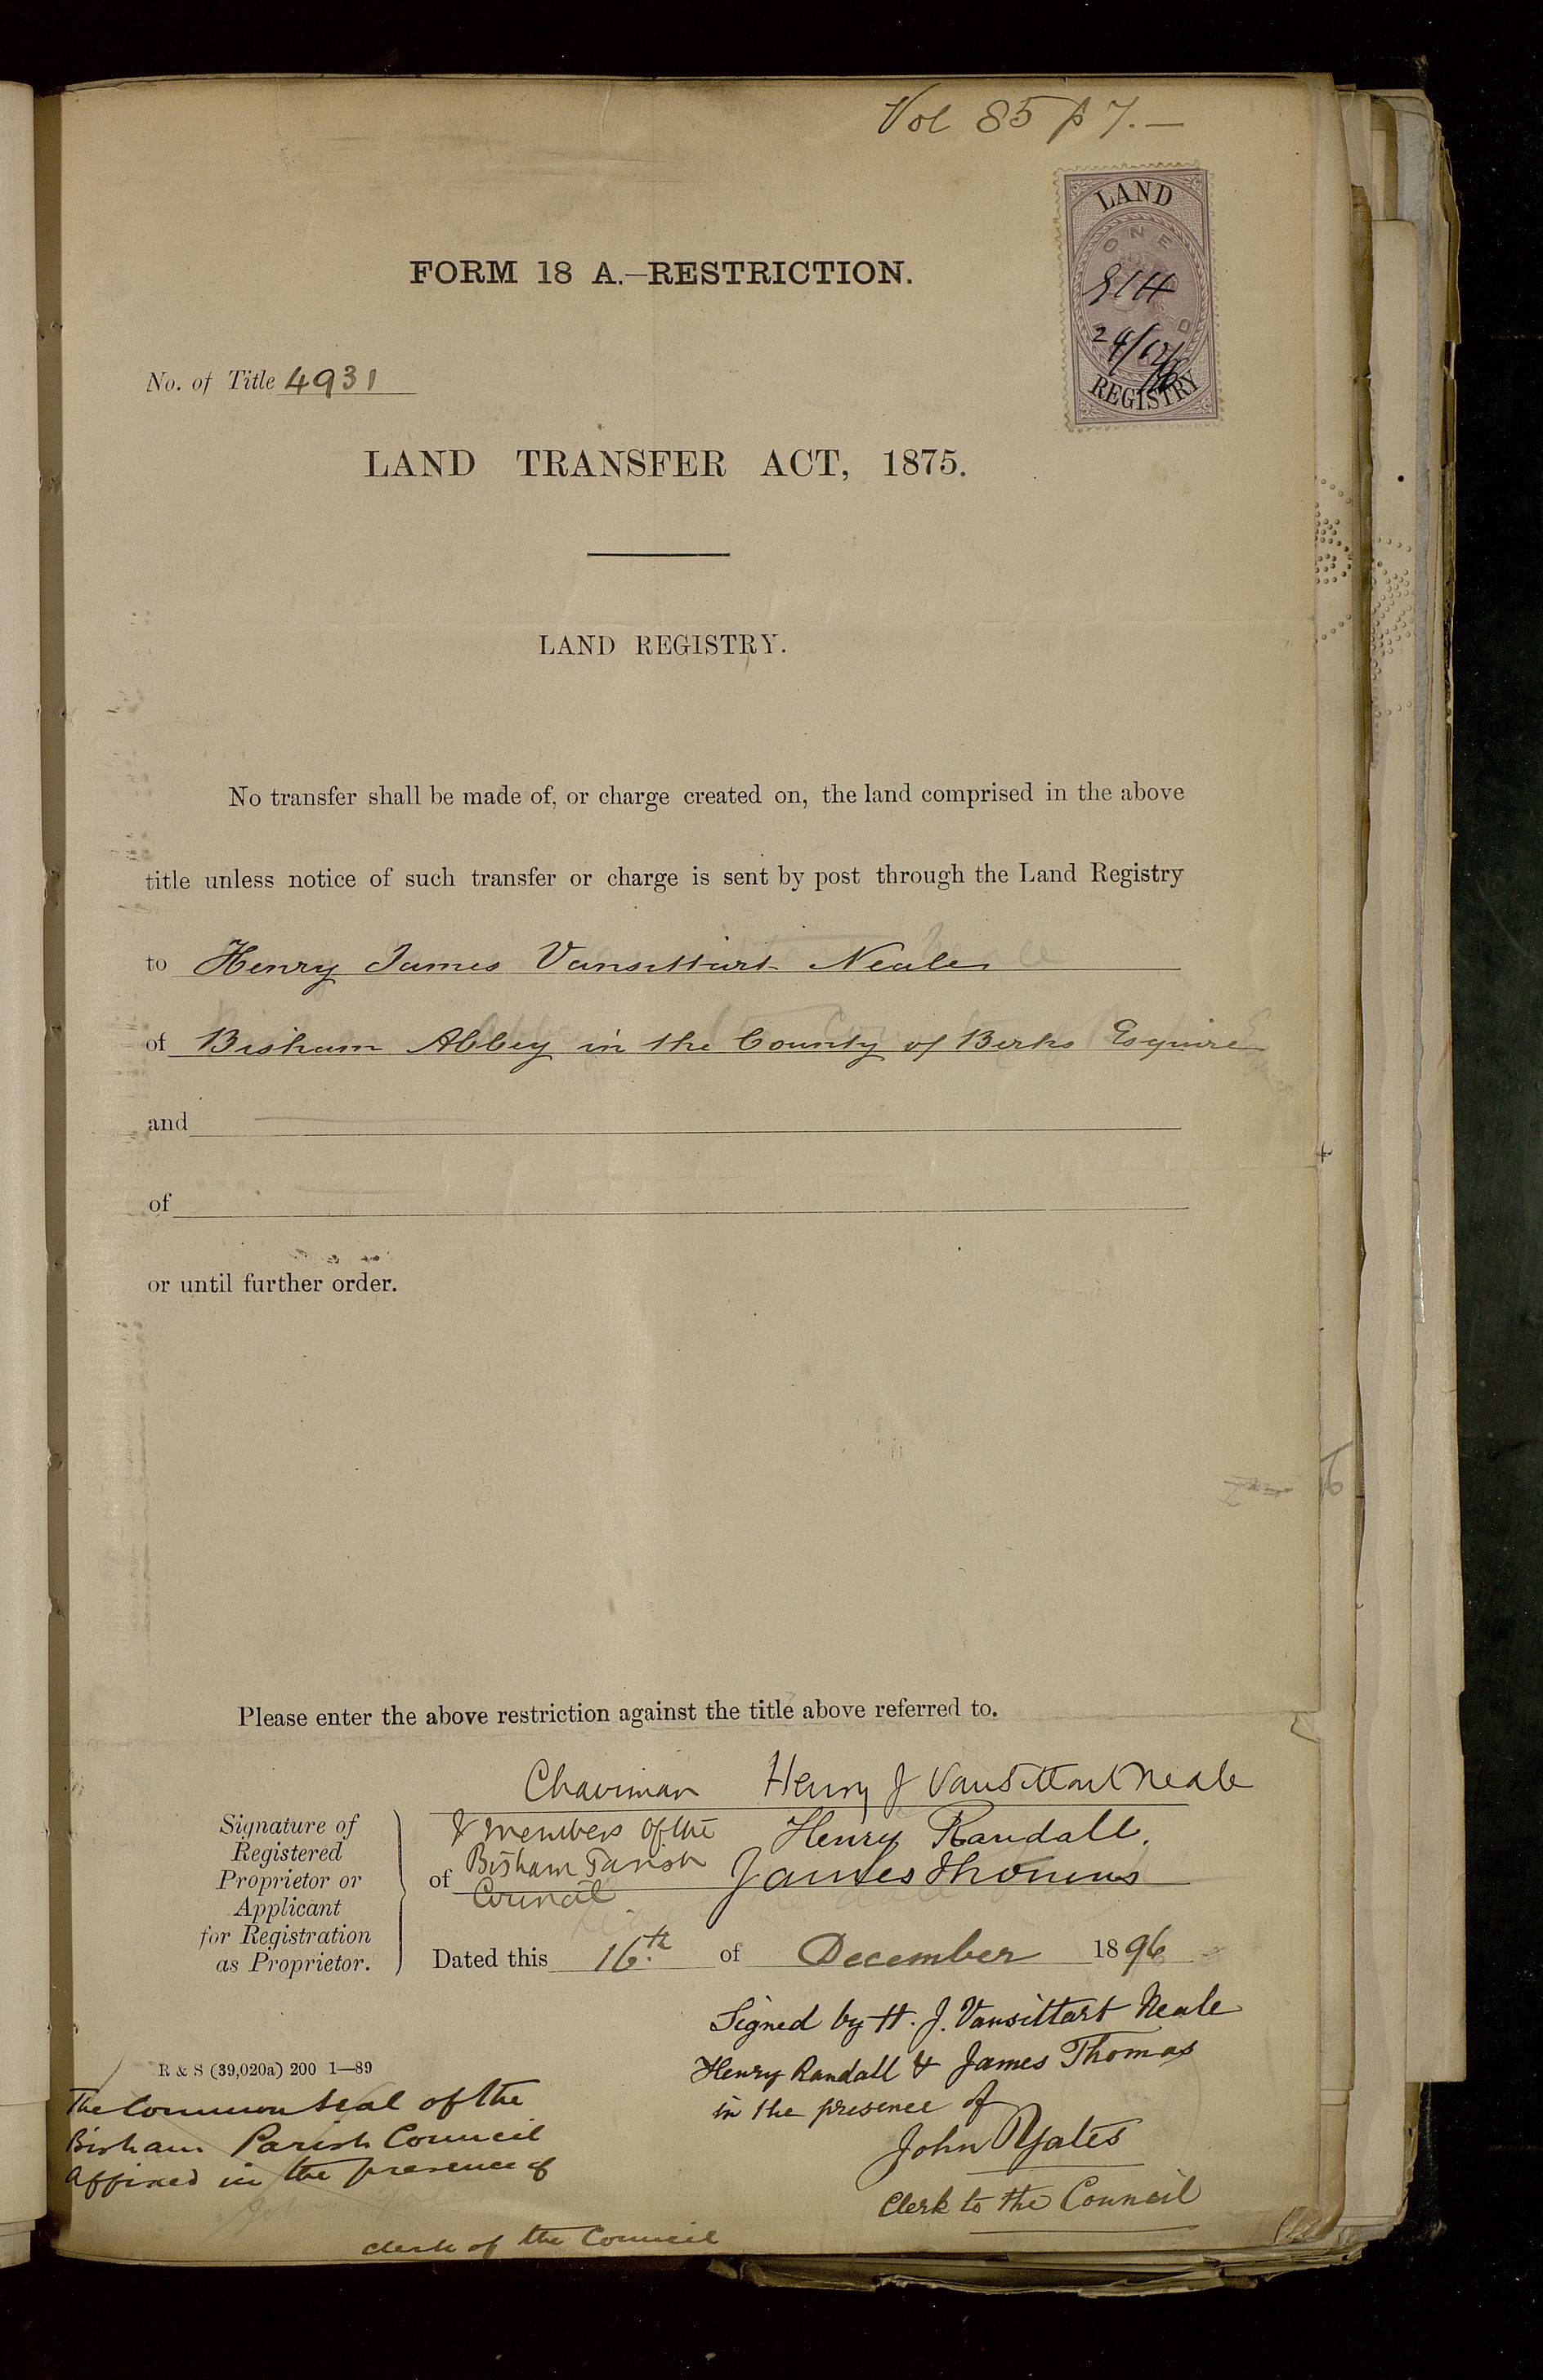 Vol 85 p 7.—
LAND
ONE
24/12/96
REGISTRY
FORM 18 A.—RESTRICTION.
No. of Title 4931
LAND TRANSFER ACT, 1875.
LAND REGISTRY.
No transfer shall be made of, or charge created on, the land comprised in the above
title unless notice of such transfer or charge is sent by post through the Land Registry
to Henry James Vansittart Neale
of Bisham Abbey in the County of Berks Esquire
and
of
or until further order.
Please enter the above restriction against the title above referred to.
Chairman Henry J Vansittart Neale
& members of the Henry Randall.
of Bisham Parish James Thomas
Council
Signature of
Registered
Proprietor or
Applicant
for Registration
as Proprietor.
Dated this 16th. of December 1896
Signed by H. J. Vansittart Neale
Henry Randall & James Thomas
in the presence of
John Yates
Clerk to the Council
R & S (39,020a) 200 1—89
The Common Seal of the
Bisham Parish Council
affixed in the presence of
clerk of the Council